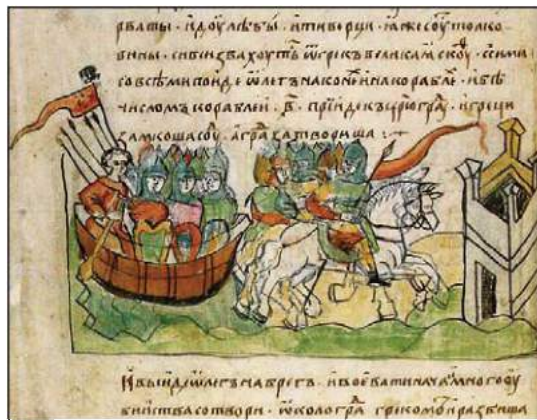 рваты · и доулѣбы · и тиворци · иже соу толко
вины · си вси звахоуть ѿ грекъ великаꙗ скоу · с сими
со всѣми поиде ѿлегъ на коне и на корабле · и бѣ
числомъ кораблеи · в҃ · прїиде к црюгра · и греци
замкоша соу · а гра затвориша
И выиде ѿлегъ на брегъ · и воевати нача · и много оу
биства сотвори · ѿколо гра греко и разбиша